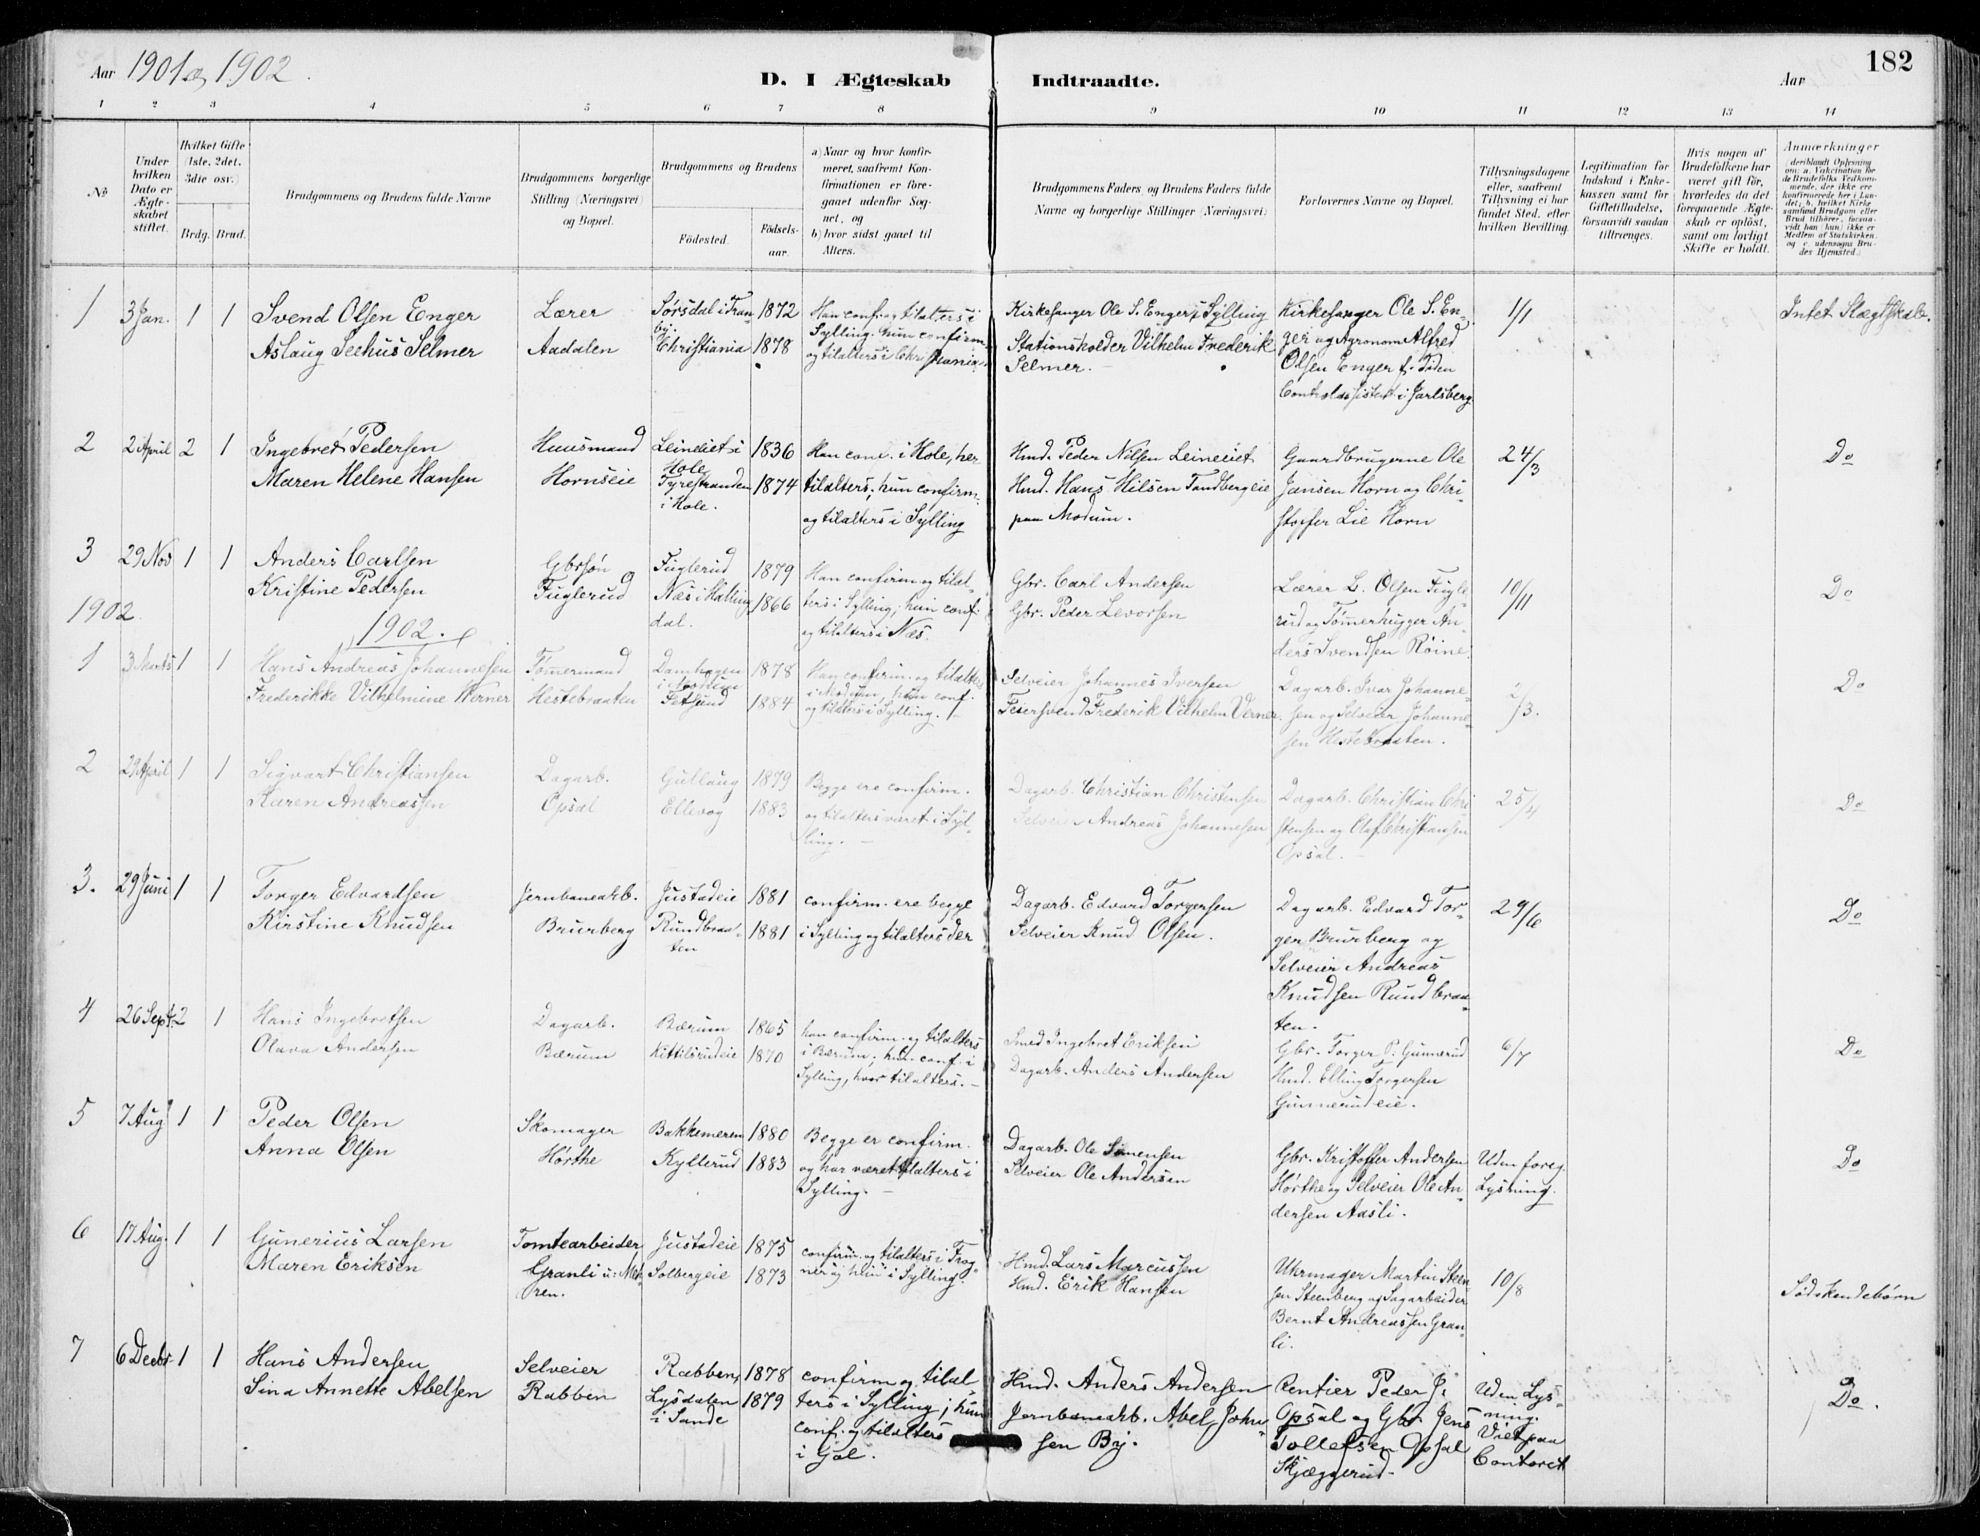 Aar 1901 og 1902.
D. I Ægteskab Indtraadte.
Aar
182
1 2 3 4 5 6 7 8 9 10 11 12 13 14
No
Under hvilken Dato er Ægteskabet stiftet.
Hvilket Gifte (1ste, 2det, 3die osv.)
Brdg. Brud.
Brudgommens og Brudens fulde Navne
Brudgommens borgerlige Stilling (Næringsvei) og Bopæl.
Brudgommens og Brudens
Fødested. Fødselsaar.
a) Naar og hvor konfirmeret, saafremt Konfirmationen er foregaaet udenfor Sognet, og
b) hvor sidst gaaet til Alters.
Brudgommens Faders og Brudens Faders fulde Navne og borgerlige Stillinger (Næringsvei)
Forlovernes Navne og Bopæl.
Tillysningsdagene eller, saafremt Tillysning ei har fundet Sted, efter hvilken Bevilling.
Legitimation for Indskud i Enkekassen samt for Giftetilladelse, forsaavidt saadan tiltrænges.
Hvis nogen af Brudefolkene har været gift før, hvorledes da det foregaaende Ægteskab er opløst, samt om lovligt Skifte er holdt.
Anmærkninger (deriblandt Oplysning om: a. Vakcination for de Brudefolks Vedkommende, der ikke ere konfirmerede her i Landet; b. hvilket Kirkesamfund Brudgom eller Brud tilhører, forsaavidt han (hun) ikke er Medlem af Statskirken, og c. udensogns Brudes Hjemsted.)
1 3 Jan. 1 1 Svend Olsen Enger Lærer Sørsdal i Tranby. 1872 Han conf. og tilalters i Kirkesanger Ole S. Enger, Sylling Kirkesanger Ole S. En- 1/1 Intet Slægtskab.
Aslaug Seehus Selmer Aadalen Christiania 1878 Sylling. hun confirm. og tilalters i Christiania. Stationsholder Vilhelm Frederik Selmer. ger og Agronom Alfred
Olsen Enger f. Tiden
i Jarlsberg
2 2 April 2 1 Ingebret Pedersen Huusmand Leineiet i Hole 1836 Han conf. i Hole, her Hmd. Peder Nilsen Leineiet Gaardbrugerne Ole 24/3 Do
Maren Helene Hansen Hornseie Tyrestranden i Hole. 1874 tilalters; hun confirm. og tilalters i Sylling Hmd. Hans Nilsen Tandbergeie paa Modum. Jansen Horn og Chri-
stoffer Lie Horn
3 29 Nov 1 1 Anders Carlsen Gbrsøn Fuglerud 1879 Han confirm. og tilal- Gbr. Carl Andersen Lærer L. Olsen Fugle- 10/11 Do
Kristine Pedersen Fuglerud Næs i Hallingdal. 1866 ters i Sylling, hun conf. og tilalters i Næs. Gbr. Peder Levorsen rud og Tømmerhugger An-
ders Svendsen Røine.
1902.
1902.
1 3 Marts 1 1 Hans Andreas Johannesen Tømermand Damhagen i Modum 1878 Han confirm. og tilalters Selveier Johannes Iversen Dagarb. Ivar Johanne- 2/3. Do
Frederikke Vilhelmine Werner Hestebraaten Fetsund 1884 i Modum, hun conf. og tilalters i Sylling. Feiersvend Frederik Vilhelm Verner. sen og Selveier Johanne-
sen Hestebraaten.
2 29 April 1 1 Sigvart Christiansen Dagarb. Gullaug 1879 Begge ere confirm. Dagarb. Christian Christensen Dagarb. Christian Chri- 25/4 Do
Karen Andreassen Opsal Ellevog 1883 og tilalters været i Sylling. Selveier Andreas Johannesen stensen og Olaf Christiansen
Opsal.
3. 29 Juni 1 1 Torger Edvardsen Jernbanearb. Justadeie 1881 confirm. ere begge Dagarb. Edvard Torgersen Dagarb. Edvard Tor- 29/6 Do
Kirstine Knudsen Brurberg Rundbraaten 1881 i Sylling og tilalters der Selveier Knud Olsen. ger Brurberg og
Selveier Andreas
Knudsen Rundbraa-
ten.
4 26 Sept. 2 1 Hans Ingebretsen Dagarb. Bærum 1865 han confirm. og tilalters Smed Ingebret Eriksen Gbr. Torger P. Gunnerud 6/7 Do
Olava Andersen Bærum Kittilsrudeie 1870 i Bærum; hun conf. i Sylling, hvor tilalters. Dagarb. Anders Andersen Hmd. Elling Torgersen
Gunnerudeie.
5 7 Aug 1 1 Peder Olsen Skomager Bakkemeren 1880 Begge er confirm. Dagarb. Ole Simensen Gbr. Kristoffer Andersen Uden foreg. Do
Anna Olsen Hørthe Kyllerud 1883 og har været tilalters i Sylling. Selveier Ole Andersen Hørthe og Selveier Ole An- Lysning.
dersen Aasli.
6 17 Aug. 1 1 Gunerius Larsen Tomtearbeider Justadeie 1875 confirm. og tilalters i Frog- Hmd. Lars Marcussen Uhrmager Martin Steen- 10/8 Sødskendebørn
Maren Eriksen Granli Solbergeie 1873 ner, hun i Sylling. Hmd. Erik Hansen sen Steenberg og Sagarbeider
Bernt Andreassen Gran-
li.
7 6 Decbr. 1 1 Hans Andersen Selveier Rabben, 1878 confirm og tilal Hmd. Anders Andersen Rentier Peder J. Uden Lys- Do.
Sina Annette Abelsen Rabben Lysdalen i Sande 1879 ters i Sylling; hun conf. og tilalters i Gol. Jernbanearb. Abel Johnsen By. Opsal og Gbr Jens ning.
Tollefsen Opsal Viet paa
Skjæggerud. Contoret